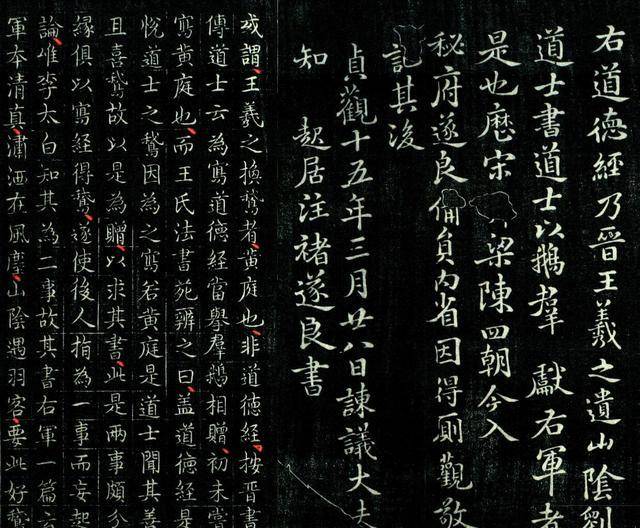 右道德經乃晉王羲之遺山陰劉
道士書道士以鵝羣獻右軍者
是也歷宋梁陳四朝今入
秘府遂良備員內省因得廁觀敬
記其後
貞觀十五年三月廿八日諫議大夫
知起居注褚遂良書
或謂王羲之換鵞者黃庭也非道德經按晉書
傳道士云為寫道德經當舉羣鵝相贈初未嘗
寫黃庭也而王氏法書苑辨之曰蓋道德經是
悅道士之鵞因為之寫若黃庭是道士聞其善
且喜鵞故以是為贈以求其書此是兩事頗分
緣俱以寫經得鵞遂使後人指為一事而妄起
論唯李太白知其為二事故其書右軍一篇云
軍本清真瀟洒在風塵山陰遇羽客要此好鵞